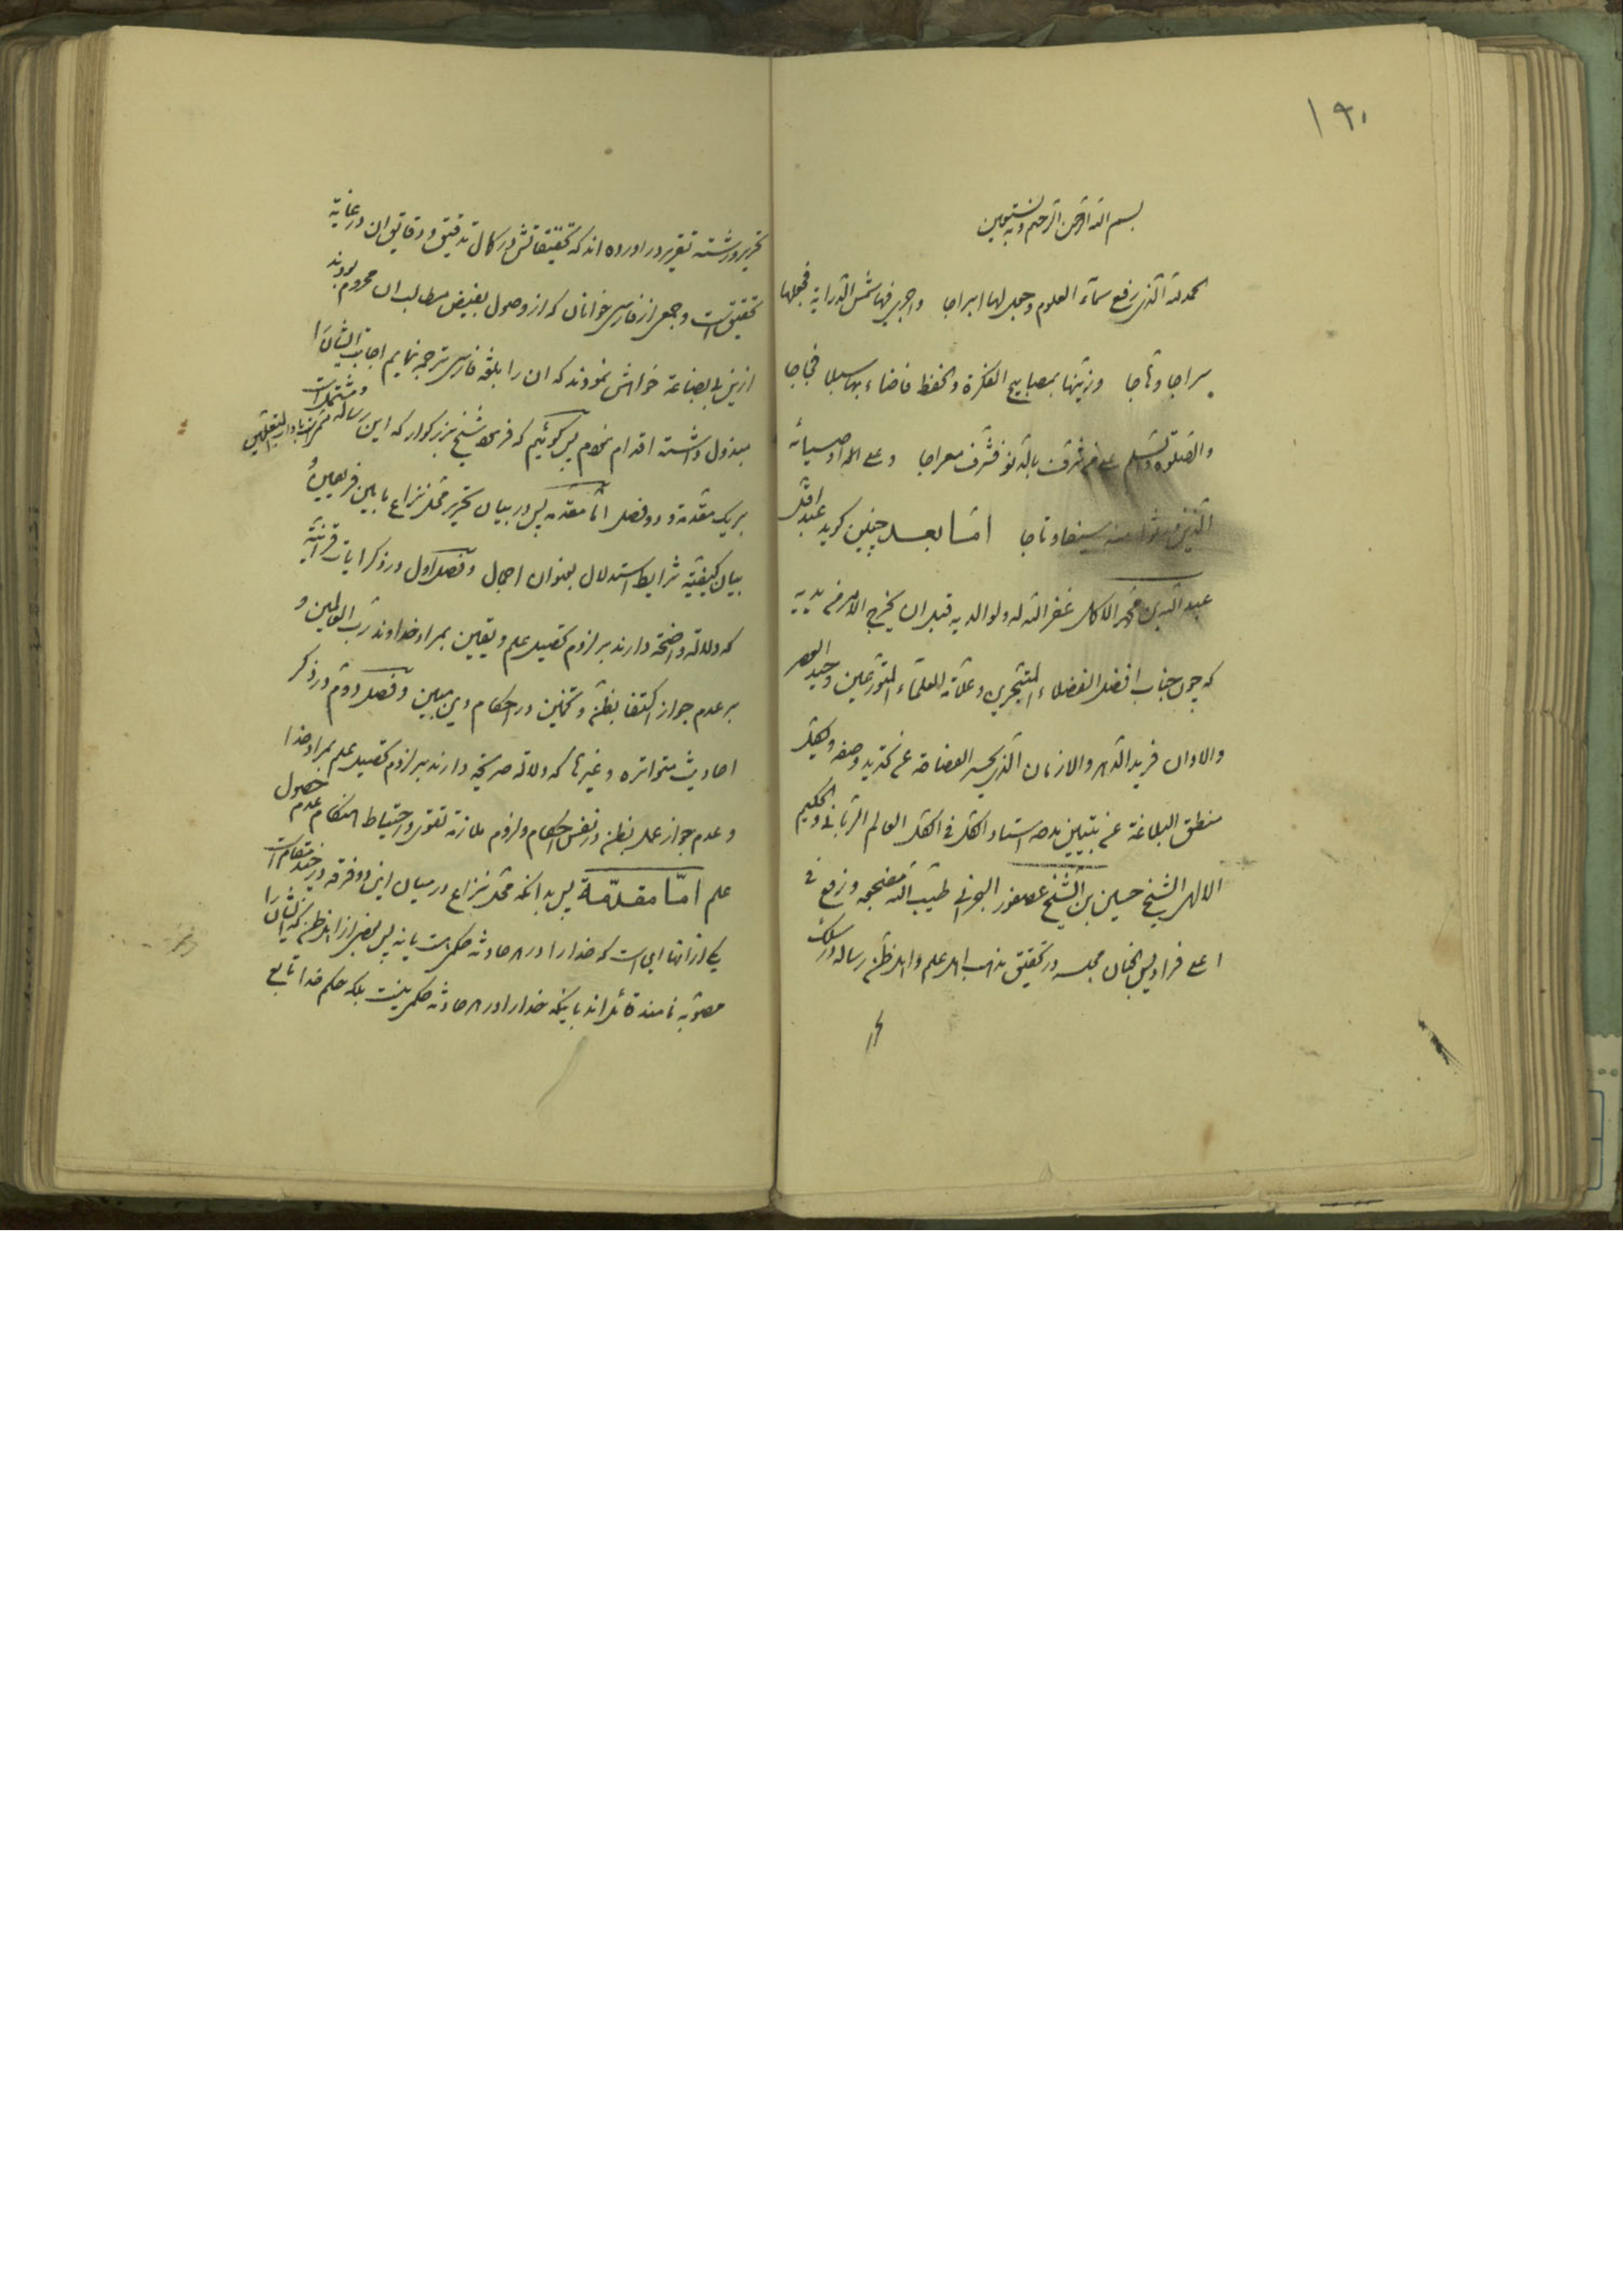 ۱۹۰
بسم الله الرحمن الرحیم وبه نستعین
الحمد لله الذی رفع سمآء العلوم وجعل لها ابراجا واجری فیها شمس الدرایة فجعلها
سراجا وهاجا وزینها بمصابیح الفکرة والحفظ فاضاء بها سبلا فجاجا
والصلوة والتسلیم علی من شرفت بالدنو فشرف معراجا وعلی اله اوصیائه
الذین منه سیفا وتاجا امّا بعد چنین کوید عبد اقل
عبد الله بن محمد غفر الله له ولوالدیه قبل ان یخرج الامر من یدیه
که چون جناب افضل الفضلاء المتبحرین وعلامة العلمآء المتورعین وحید العصر
والاوان فرید الدهر والازمان الذی یحسر الفصاحة عن تحدید وصفه ویکل
منطق البلاغة عن تبیین مدحه استاد الکل فی الکل العالم الربانی والحکیم
الالهی الشیخ حسین بن الشیخ عصفور البحرانی طیب الله مضجعه ورفع فی
اعلی فرادیس الجنان مجلسه در تحقیق مذهب اهل علم واهل ظن رساله در سلک
تحریر ورشته تقریر در اورده اند که تحقیقاتش در کمال تدقیق ودقایق ان در غایة
تحقیق است وجمعی از فارسی خوانان که از وصول بفیض مطالب ان محروم بودند
ازین بی بضاعة خواهش نمودند که ان را بلغة فارسی ترجمه نمایم اجابت ایشان را
مبذول داشته اقدام نمودم پس کوئیم که فرموده شیخ بزرکوار که این رساله ومشتمل است
بریک مقدمه ودو فصل امّا مقدمه پس در بیان تحریر محل نزاع ما بین فریقین و
بیان کیفیّة شرایط استدلال بعنوان اجمال وفصل اول در ذکر ایات قرانیّه
که دلالة واضحة دارند بر لزوم تحصیل علم ویقین بمراد خداوند رب العالمین و
بر عدم جواز اکتفا بظن وتخمین در احکام دین مبین وفصل دوم در ذکر
احادیث متواتره وغیرها که دلالة صریحة دارند بر لزوم تحصیل علم بمراد خدا
وعدم جواز عمل بظن در نفس احکام ولزوم ملازمة تقوی واحتیاط هنکام عدم حصول
علم امّا مقدمّة پس بدانکه محل نزاع در میان این دو فرقه در چند مقام است
یکی از انها این است که خدا را در هر حادثه حکمی هست یا نه پس بعضی از اهل ظن که ایشان را
مصوّبه نامند قائل اند باینکه خدا را در هر حادثه حکمی نیست بلکه حکم خدا تابع